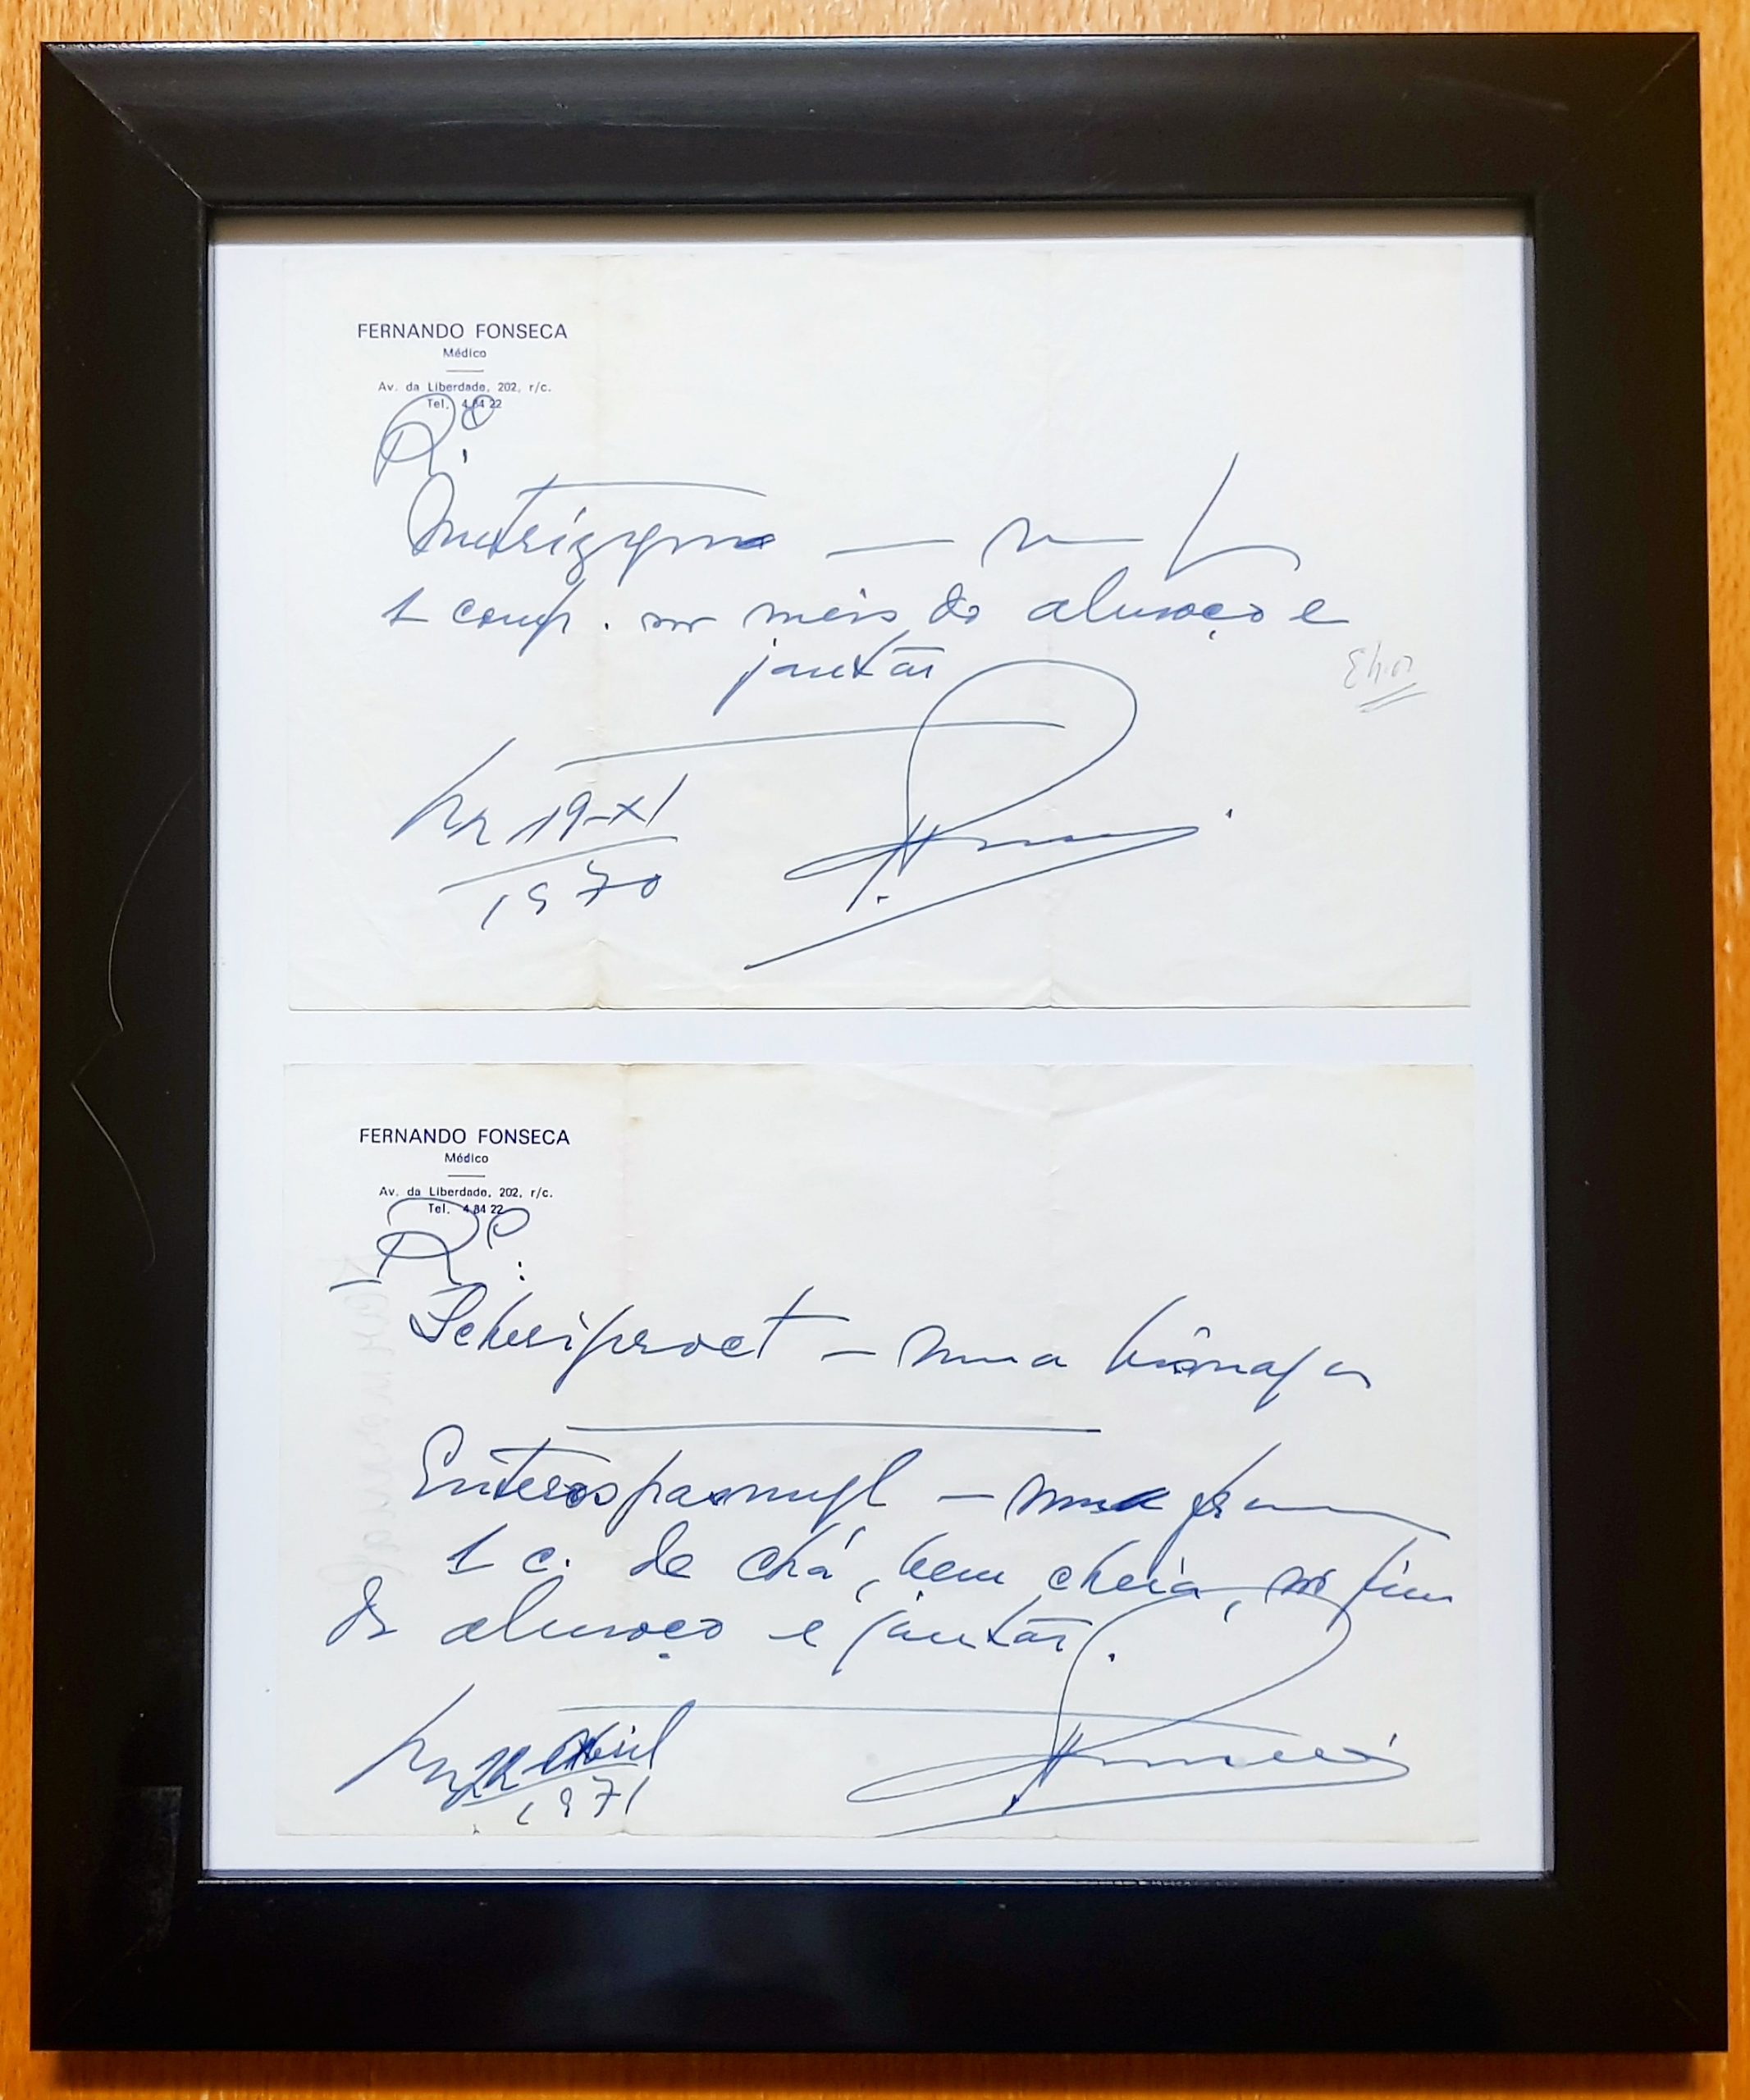 FERNANDO FONSECA
Médico
Av. da Liberdade, 202, r/c.
Tel. 4 84 22
Rº:
Nutrizyma —
1 comp. no meio do almoço e
jantar
Lx 19-XI
1970
FERNANDO FONSECA
Médico
Av. da Liberdade, 202, r/c.
Tel. 4 84 22
Rº:
Scheriproct — uma bisnaga
Enterospasmyl — uma
1 c. de chá, bem cheia, no fim
do almoço e jantar.
Lx 22 Abril
1971